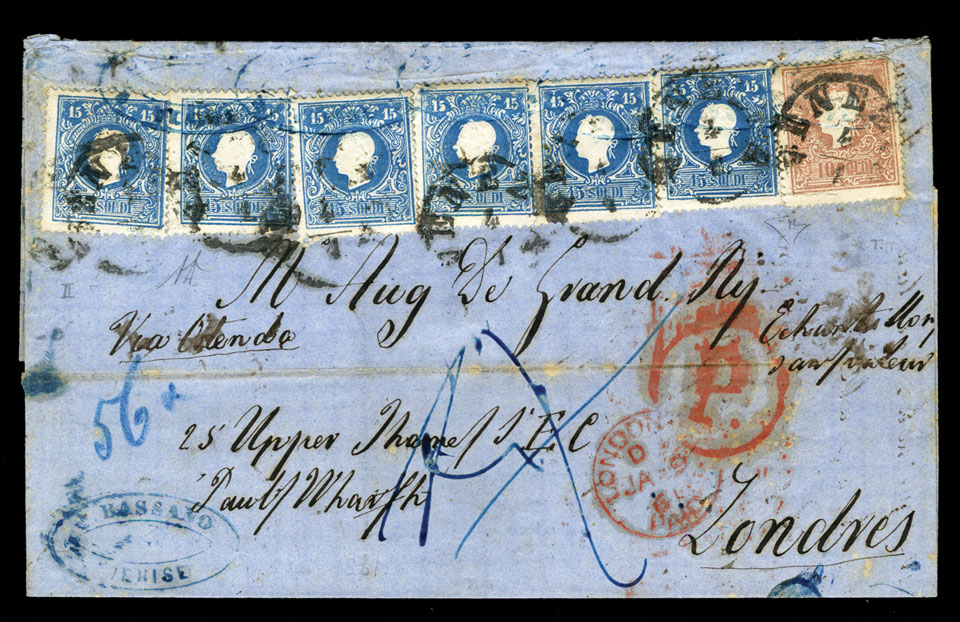 15 15 15 15 15 15 15 15 15 15 15 15
15 SOLDI 15 SOLDI 15 SOLDI 15 SOLDI 15 SOLDI 15 SOLDI 10 SOLDI
II
M Aug De Grand Ry
Via Ostende
Echantillon
sans valeur
56
P.
25 Upper Thames St E C
Paul's Wharf
LONDON
D
JA
PAID
Londres
BASSANO
VENISE